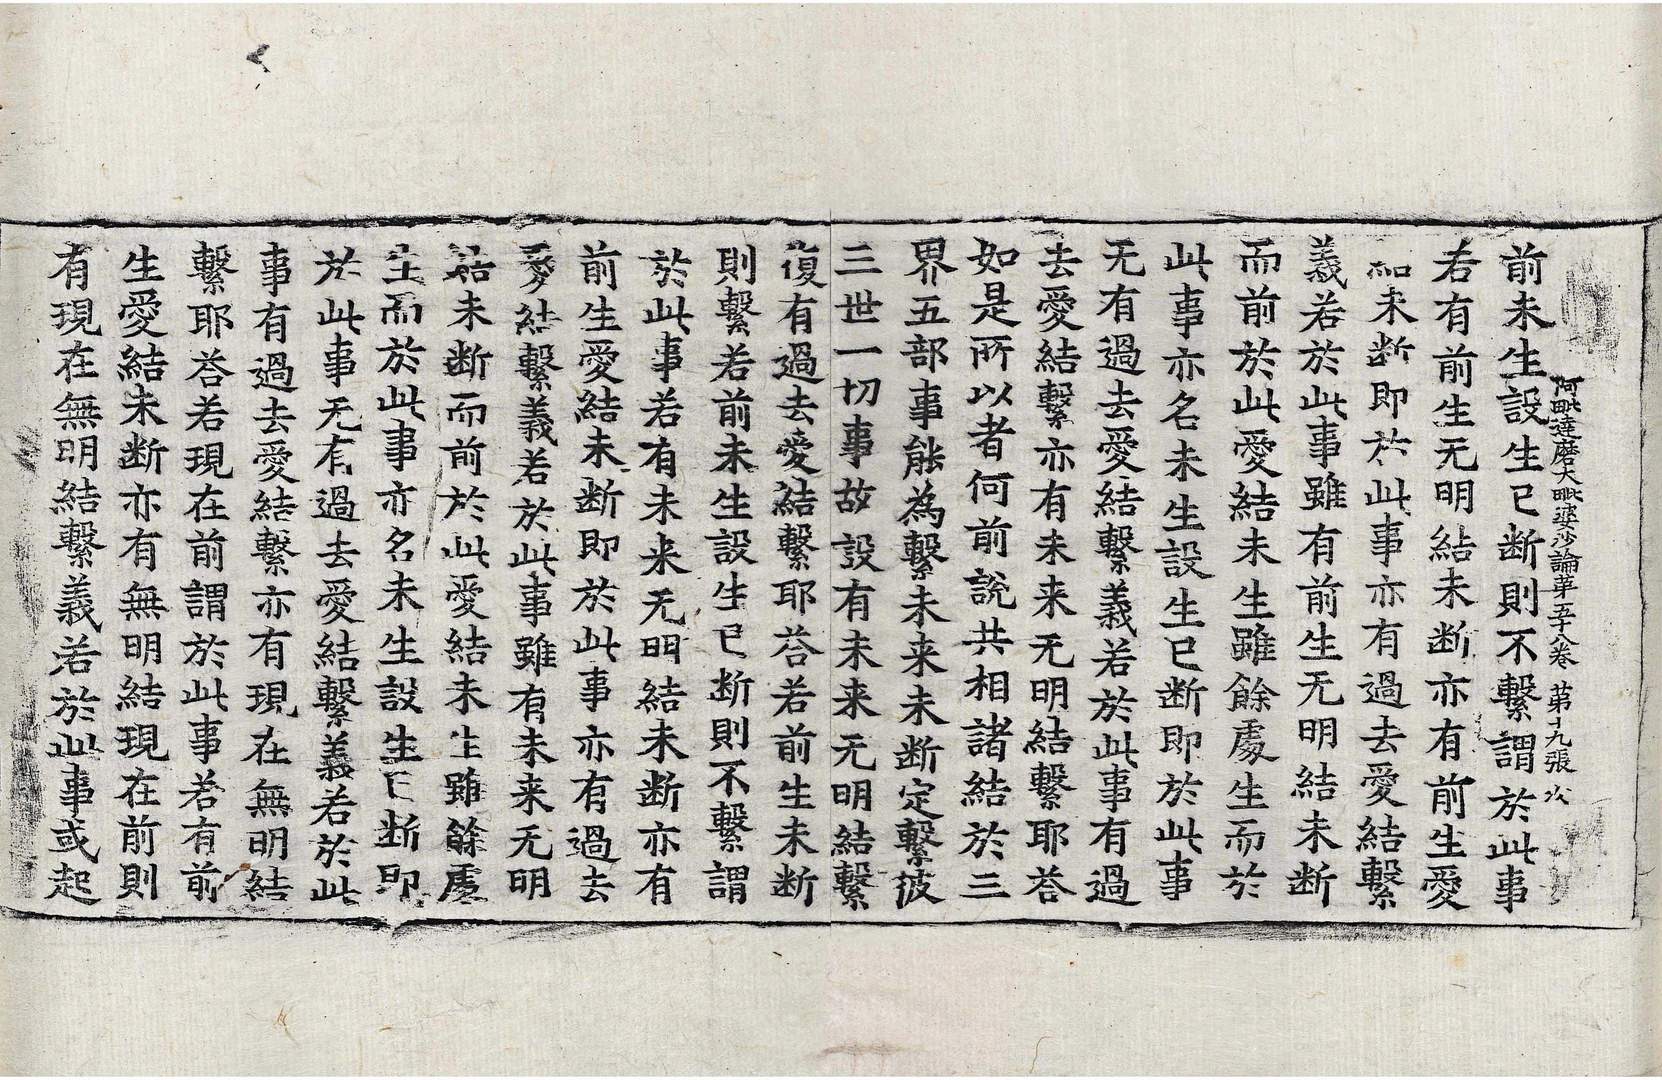 阿毗達磨大毗婆沙論第五十八卷 第十九張
前未生設生已断則不繫謂於此事
若有前生无明結未断亦有前生愛
結未断即於此事亦有過去愛結繫
義若於此事雖有前生无明結未断
而前於此愛結未生雖餘處生而於
此事亦名未生設生已断即於此事
无有過去愛結繫義若於此事有過
去愛結繫亦有未来无明結繫耶荅
如是所以者何前說共相諸結於三
界五部事能為繫未来未断定繫彼
三世一切事故設有未来无明結繫
復有過去愛結繫耶荅若前生未断
則繫若前未生設生已断則不繫謂
於此事若有未来无明結未断亦有
前生愛結未断即於此事亦有過去
愛結繫義若於此事雖有未来无明
結未断而前於此愛結未生雖餘處
生而於此事亦名未生設生已断即
於此事无有過去愛結繫義若於此
事有過去愛結繫亦有現在無明結
繫耶荅若現在前謂於此事若有前
生愛結未断亦有無明結現在前則
有現在無明結繫義若於此事或起